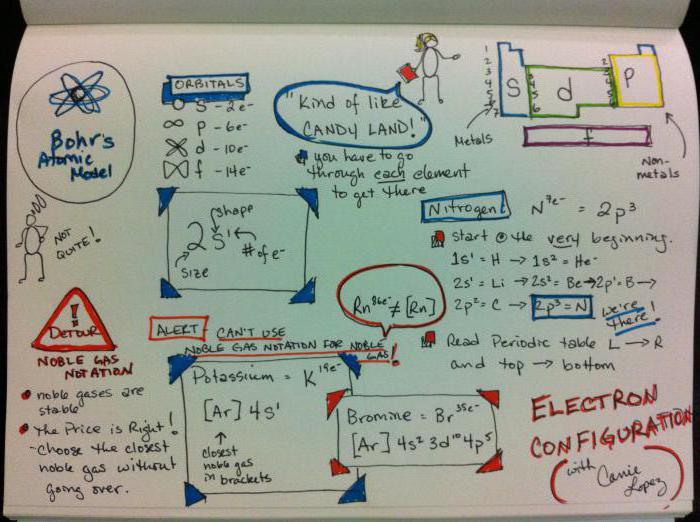 Bohr's
Atomic
Model
NOT
QUITE!
ORBITALS
S - 2e-
P - 6e-
d - 10e-
f - 14e-
shape
2s¹
size
# of e-
"Kind of like
CANDY LAND!"
you have to go
through each element
to get there
1
2
3
4
5
6
7
S
d
P
f
Metals
Non-
metals
Nitrogen N⁷ᵉ⁻ = 2p³
start @ the very beginning.
1s¹ = H → 1s² = He
2s¹ = Li → 2s² = Be → 2p¹ = B →
2p² = C → 2p³ = N
we're
there!
Read Periodic table L → R
and top → bottom
DETOUR
NOBLE GAS
NOTATION
noble gases are
stable
The Price is Right!
- Choose the closest
noble gas without
going over.
ALERT CAN'T USE
NOBLE GAS NOTATION FOR NOBLE
GAS!
Rn⁸⁶ᵉ⁻ ≠ [Rn]
Potassium = K¹⁹ᵉ⁻
[Ar] 4s¹
closest
noble gas
in brackets
Bromine = Br³⁵ᵉ⁻
[Ar] 4s² 3d¹⁰ 4p⁵
ELECTRON
CONFIGURATION
with
Lopez